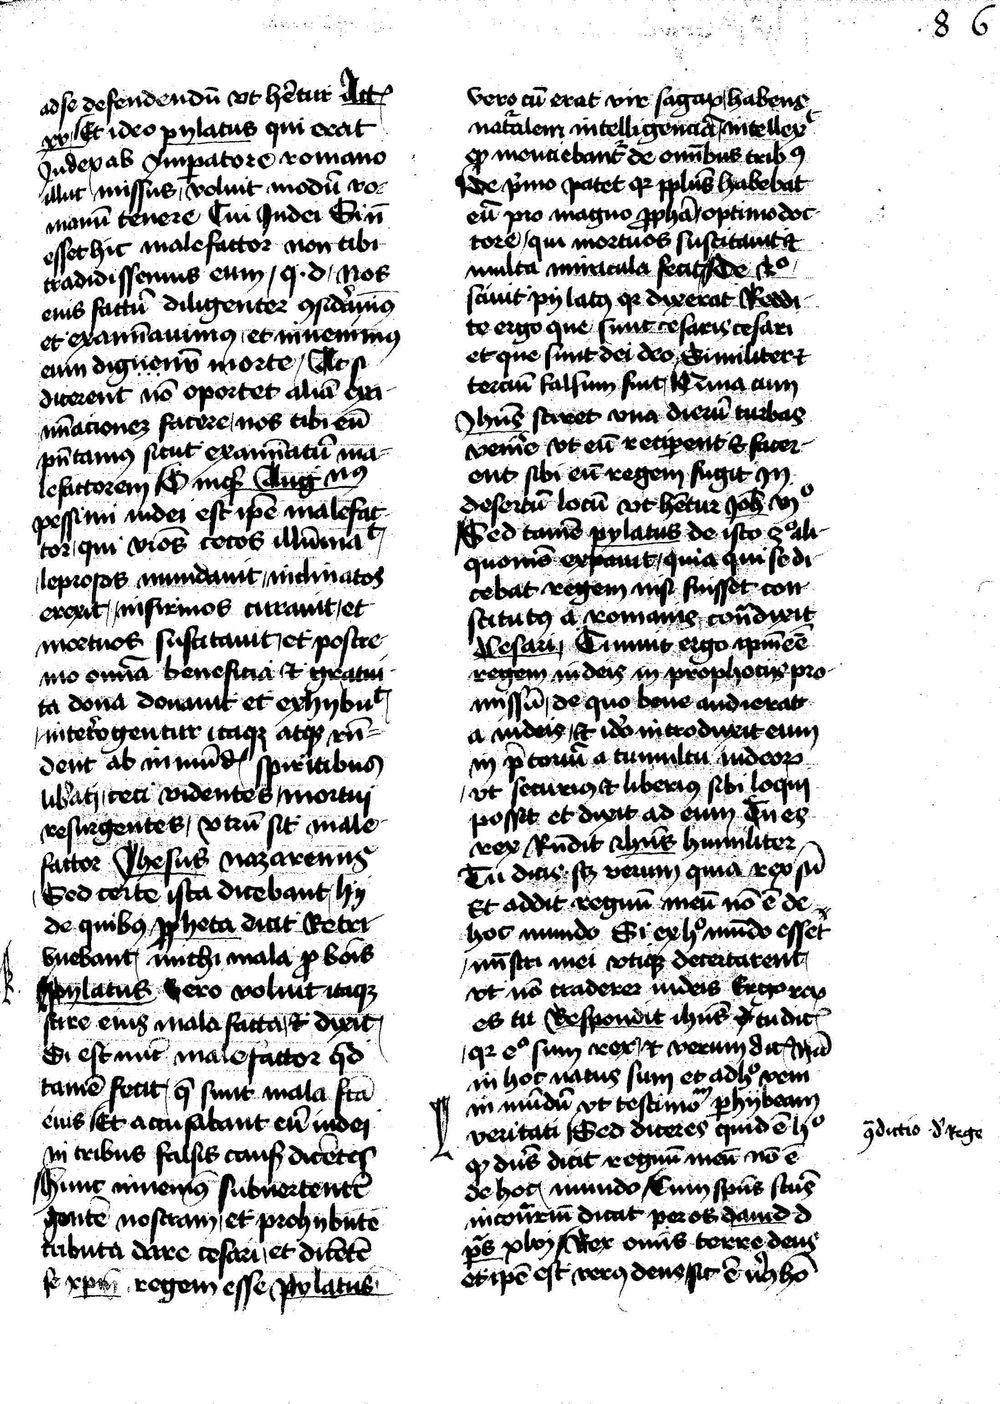 86
ad se defendendū vt hētur Act
xv Et ideo pylatus qui erat
Judex ab Jmpatore romano
illuc missus, voluit modū ro-
manū tenere Cui Judei Si nō
esset hic malefactor non tibi
tradidissemus eum, q.d, Nos
eius factū diligenter ꝯsidāmꝰ
et examīauimus, et inuenimus
eum dignum morte, Ac si
dicerent nō oportet aliā exa-
mīacionez facere, nos tibi eū
pn̄tamus sicut examīatū ma-
lefactorem O inqͥt Augꝰnꝰ
pessimi iudei est ipē malefac-
tor, qui vrōs cecos illūinaͭ
leprosos mundauit, inclinatos
erexit, infirmos curauit, et
mortuos suscitauit, et postre-
mo omīa beneficia et gratui-
ta dona donauit et exhybuͭ
interogentur itaqꝫ atqꝫ rn̄-
dent ab inmūdꝭ spiritibus
libati, ceci videntes, mortui
resurgentes, vtrū sit male-
factor Jhesus nazarenus
Sed certe ista dicebant hij
de quibꝰ ꝓpheta dicit Retri-
buebant michi mala ꝓ boīs
Pylatus vero voluit itaqꝫ
scire eius mala facta, et dixit,
Si est nūc malefactor qd
tamē fecit, q̄ sunt mala fcā
eius Et accusabant eū iudei
in tribus falsis causis dicētes
Hunc inuenimꝰ subuertentē
gentē nostram, et prohybūte
tributa dare cesari, et dicētē
se xpm regem esse Pylatus
vero cū erat vir sagax, habens
natālem intelligenciā, intellexͭ
ꝙ menciebantͬ de omībus tribꝰ
De pͥmo patet qꝛ pplūs habebat
eū pro magno ꝓphā, optimo doc-
tore, qui mortuos suscitauit et
multa miracula fecit De 2º
sciuit pylatꝰ qꝛ dixerat Reddi-
te ergo que sunt cesaris cesari
et que sunt dei deo, Similiter et
terciū falsum fuit, Nāma cum
Jhūs sciret vna dierū turbas
venīe vt eū recipent et facer-
ent sibi eū regem fugit in
desertū locū vt hētur Joh vjº
Sed tamē pylatus de isto 3º ali-
quomō expauit, quia qui se di-
cebat regem nisi fuisset con-
stitutꝰ a romanis, cont̄dixit
Cesari, Timuit ergo ipm̄ eē
regem iudeis in prophetis pro-
missū, de quo bene audierat
a iudeis, et idō introduxit eum
in ꝑtoriū a tumultu iudeoꝝ
vt securius et liberiꝰ sibi loqui
possit et dixit ad eum Tu es
rex Rn̄dit ihūs humiliter
Tu dicis, scꝫ verum quia rex sū
Et addit regnū meū nō ē de
hoc mundo Si ex hº mūdo essͭ
mīstri mei vtiqꝫ decertarent
vt nō traderer iudeis Ergo rex
es tu Respondit ihūs Tu dicͭ
qꝛ eº sum rex, et verum dicͭ Nā
in hoc natus sum et ad hº veni
in mūdū vt testimoͫ phybeam
veritati Sed diceres quid ē hº
ꝙ dūs dicit regnū meū nō ē
de hoc mundo, Cum spūs scūs
incōtrariū dicat per os dauid d
pͥs xlvj Rex omīs terre deus
et ipē est verꝰ deus, sic ē vͬꝰ hō
ꝯdictio dͬ Rege